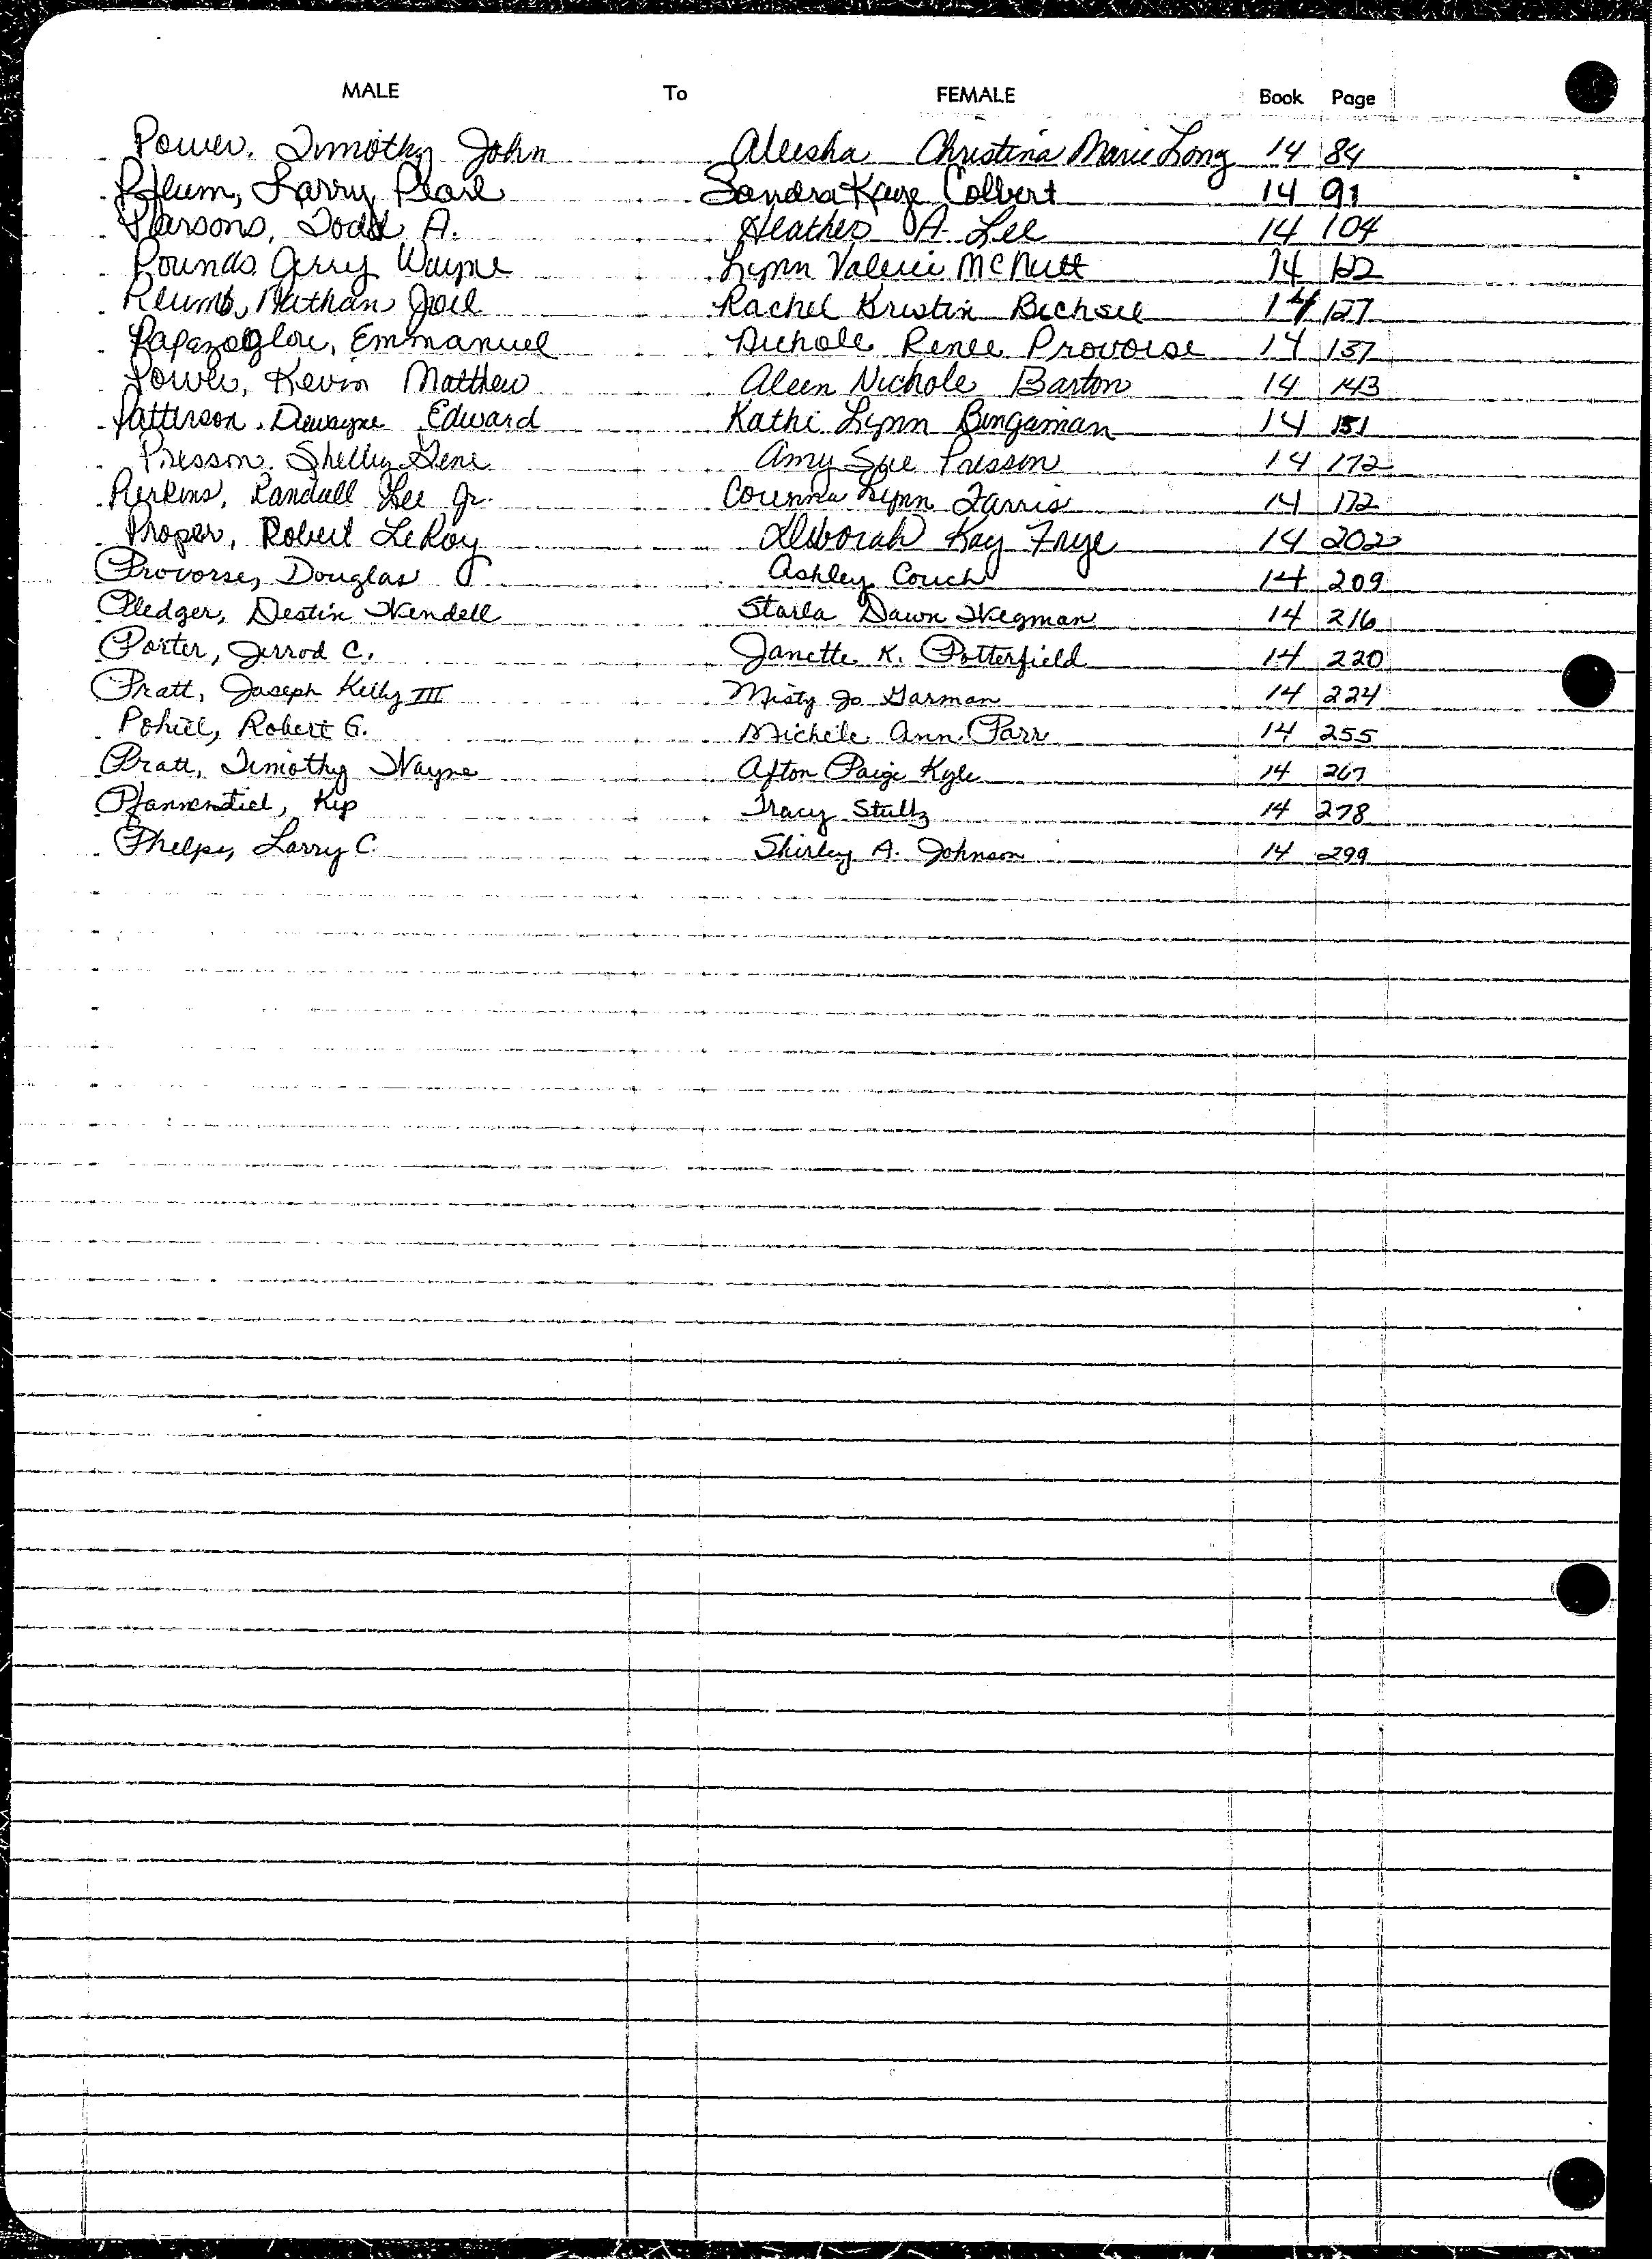 MALE To FEMALE Book Page
Power, Timothy John Aleesha Christina Marie Long 14 84
Larry Pearl Sandra Kaye Colbert 14 91
Parsons, Todd A. Heather A. Lee 14 104
Pounds, Jerry Wayne Lynn Valerie McNutt 14 122
Plumb, Nathan Joel Rachel Kristin Bichsel 14 127
Papazoglou, Emmanuel Nichole Renee Provorse 14 137
Power, Kevin Matthew Aleen Nichole Barton 14 143
Patterson, Dewayne Edward Kathi Lynn Bingaman 14 151
Presson, Shelby Gene Amy Sue Presson 14 172
Perkins, Randall Lee Jr. Corinna Lynn Farris 14 172
Proper, Robert LeRoy Deborah Kay Frye 14 202
Provorse, Douglas Ashley Couch 14 209
Pledger, Destin Wendell Starla Dawn Wegman 14 216
Porter, Jerrod C. Janette K. Potterfield 14 220
Pratt, Joseph Kelly III Misty Jo Garman 14 224
Robert G. Michele Ann Parr 14 255
Pratt, Timothy Wayne Afton Paige Kyle 14 267
Pfannenstiel, Kip Tracy Stultz 14 278
Phelps, Larry C. Shirley A. Johnson 14 299